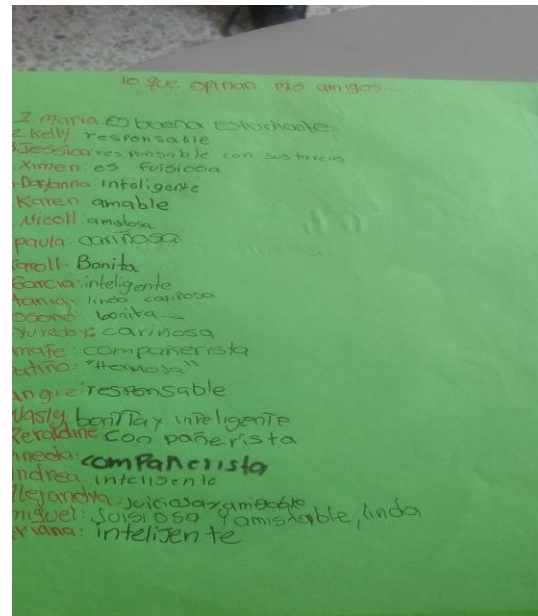 lo que opinan mis amigos......
1. maria: Es buena estudiante
2. Kelly. responsable
Jessica responsable con sus tareas
Ximen: es fuisiosa
Dayanna: inteligente
Karen amable
Nicoll: amistosa
paula: cariñosa
Karoll: Bonita
Garcia: inteligente
tania: linda cariñosa
Osorio: bonita
Yuredsy: cariñosa
mafe: compañerista
patiño: "Hermosa"
angie: responsable
bonita y inteligente
Geraldine: Con pañerista
comPañerista
Andrea: intelisente
Alejandra: juiciosa y amable
miguel: Juisiosa y amistable, linda
inteliJente